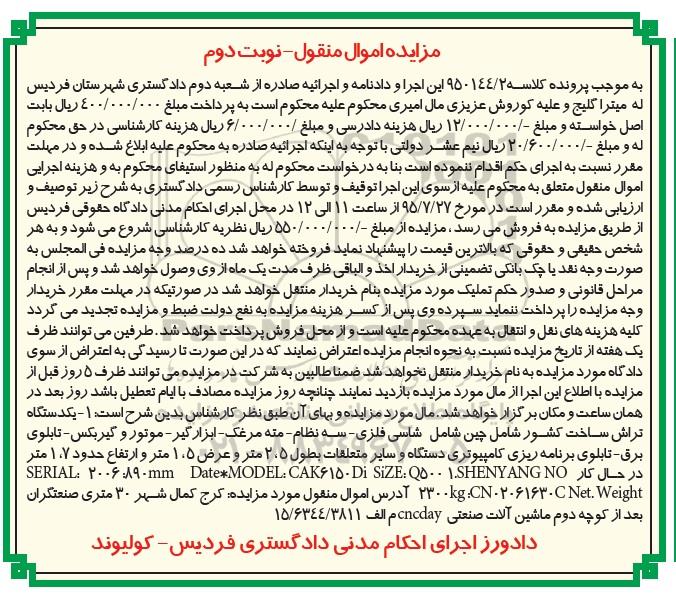 مزایده اموال منقول - نوبت دوم
به موجب پرونده کلاسه ۹۵۰۱۴۴/۲ این اجرا و دادنامه و اجرائیه صادره از شعبه دوم دادگستری شهرستان فردیس
له میترا گلیج و علیه کوروش عزیزی مال امیری محکوم علیه محکوم است به پرداخت مبلغ ۴۰۰/۰۰۰/۰۰۰ ریال بابت
اصل خواسته و مبلغ -/۱۲/۰۰۰/۰۰۰ ریال هزینه دادرسی و مبلغ /۶/۰۰۰/۰۰۰ ریال هزینه کارشناسی در حق محکوم
له و مبلغ -/۲۰/۶۰۰/۰۰۰ ریال نیم عشر دولتی با توجه به اینکه اجرائیه صادره به محکوم علیه ابلاغ شده و در مهلت
مقرر نسبت به اجرای حکم اقدام ننموده است بنا به درخواست محکوم له به منظور استیفای محکوم به و هزینه اجرایی
اموال منقول متعلق به محکوم علیه ازسوی این اجرا توقیف و توسط کارشناس رسمی دادگستری به شرح زیر توصیف و
ارزیابی شده و مقرر است در مورخ ۹۵/۷/۲۷ از ساعت ۱۱ الی ۱۲ در محل اجرای احکام مدنی دادگاه حقوقی فردیس
از طریق مزایده به فروش می رسد ، مزایده از مبلغ -/۵۵۰/۰۰۰/۰۰۰ ریال نظریه کارشناسی شروع می شود و به هر
شخص حقیقی و حقوقی که بالاترین قیمت را پیشنهاد نماید فروخته خواهد شد ده درصد وجه مزایده فی المجلس به
صورت وجه نقد یا چک بانکی تضمینی از خریدار اخذ و الباقی ظرف مدت یک ماه از وی وصول خواهد شد و پس از انجام
مراحل قانونی و صدور حکم تملیک مورد مزایده بنام خریدار منتقل خواهد شد در صورتیکه در مهلت مقرر خریدار
وجه مزایده را پرداخت ننماید سپرده وی پس از کسر هزینه مزایده به نفع دولت ضبط و مزایده تجدید می گردد
کلیه هزینه های نقل و انتقال به عهده محکوم علیه است و از محل فروش پرداخت خواهد شد . طرفین می توانند ظرف
یک هفته از تاریخ مزایده نسبت به نحوه انجام مزایده اعتراض نمایند که در این صورت تا رسیدگی به اعتراض از سوی
دادگاه مورد مزایده به نام خریدار منتقل نخواهد شد ضمنا طالبین به شرکت در مزایده می توانند ظرف ۵ روز قبل از
مزایده با اطلاع این اجرا از مال مورد مزایده بازدید نمایند چنانچه روز مزایده مصادف با ایام تعطیل باشد روز بعد در
همان ساعت و مکان برگزار خواهد شد . مال مورد مزایده و بهای آن طبق نظر کارشناس بدین شرح است: ۱- یکدستگاه
تراش ساخت کشور شامل چین شامل شاسی فلزی- سه نظام- مته مرغک- ابزارگیر- موتور و گیربکس- تابلوی
برق- تابلوی برنامه ریزی کامپیوتری دستگاه و سایر متعلقات بطول ۲.۵ متر و عرض ۱.۵ متر و ارتفاع حدود ۱.۷ متر
در حال کار SERIAL: ۲۰۰۶ :۸۹۰mm Date*MODEL: CAK۶۱۵۰ Di SiZE: Q۵۰۰ ۱.SHENYANG NO
۲۳۰۰kg :CN۰۲۰۶۱۶۳۰C Net. Weight آدرس اموال منقول مورد مزایده: کرج کمال شهر ۳۰ متری صنعتگران
بعد از کوچه دوم ماشین آلات صنعتی cncday م الف ۱۵/۶۳۴۴/۳۸۱۱
دادورز اجرای احکام مدنی دادگستری فردیس - کولیوند